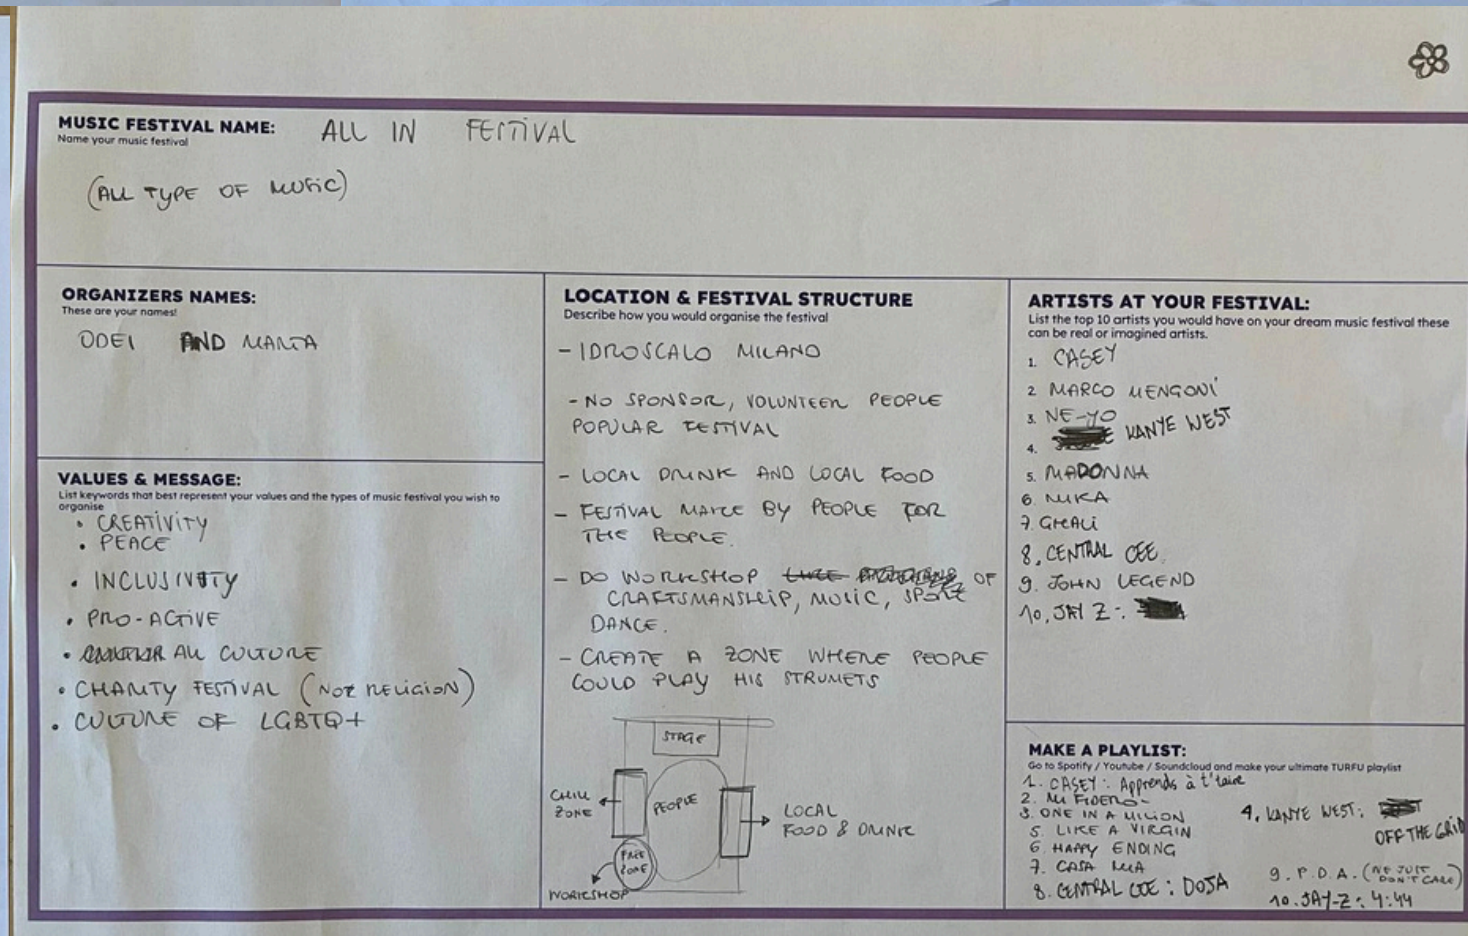 MUSIC FESTIVAL NAME: ALL IN FESTIVAL
Name your music festival
(ALL TYPE OF MUSIC)
ORGANIZERS NAMES:
These are your names!
ODEI AND MARTA
VALUES & MESSAGE:
List keywords that best represent your values and the types of music festival you wish to
organise
• CREATIVITY
• PEACE
• INCLUSIVITY
• PRO-ACTIVE
• ALL CULTURE
• CHARITY FESTIVAL (NOT RELIGION)
• CULTURE OF LGBTQ+
LOCATION & FESTIVAL STRUCTURE
Describe how you would organise the festival
- IDROSCALO MILANO
- NO SPONSOR, VOLUNTEER PEOPLE
POPULAR FESTIVAL
- LOCAL DRINK AND LOCAL FOOD
- FESTIVAL MAKE BY PEOPLE FOR
THE PEOPLE.
- DO WORKSHOP OF
CRAFTSMANSHIP, MUSIC, SPORT
DANCE.
- CREATE A ZONE WHERE PEOPLE
COULD PLAY HIS STRUMETS
STAGE
CHILL
ZONE
PEOPLE
LOCAL
FOOD & DRINK
FREE
ZONE
WORKSHOP
ARTISTS AT YOUR FESTIVAL:
List the top 10 artists you would have on your dream music festival these
can be real or imagined artists.
1. CASEY
2 MARCO MENGONI
3. NE-YO
4. KANYE WEST
5. MADONNA
6 MIKA
7. GHALI
8. CENTRAL CEE
9. JOHN LEGEND
10. JAY Z:
MAKE A PLAYLIST:
Go to Spotify / Youtube / Soundcloud and make your ultimate TURFU playlist
1. CASEY: Apprends à t'taire
2. MI FIDERO-
3. ONE IN A MILION
4. KANYE WEST:
OFF THE GRID
5. LIKE A VIRGIN
6. HAPPY ENDING
7. CASA MIA
8. CENTRAL CEE: DOJA
9. P.D.A. (WE JUST
DON'T CARE)
10. JAY-Z: 4:44